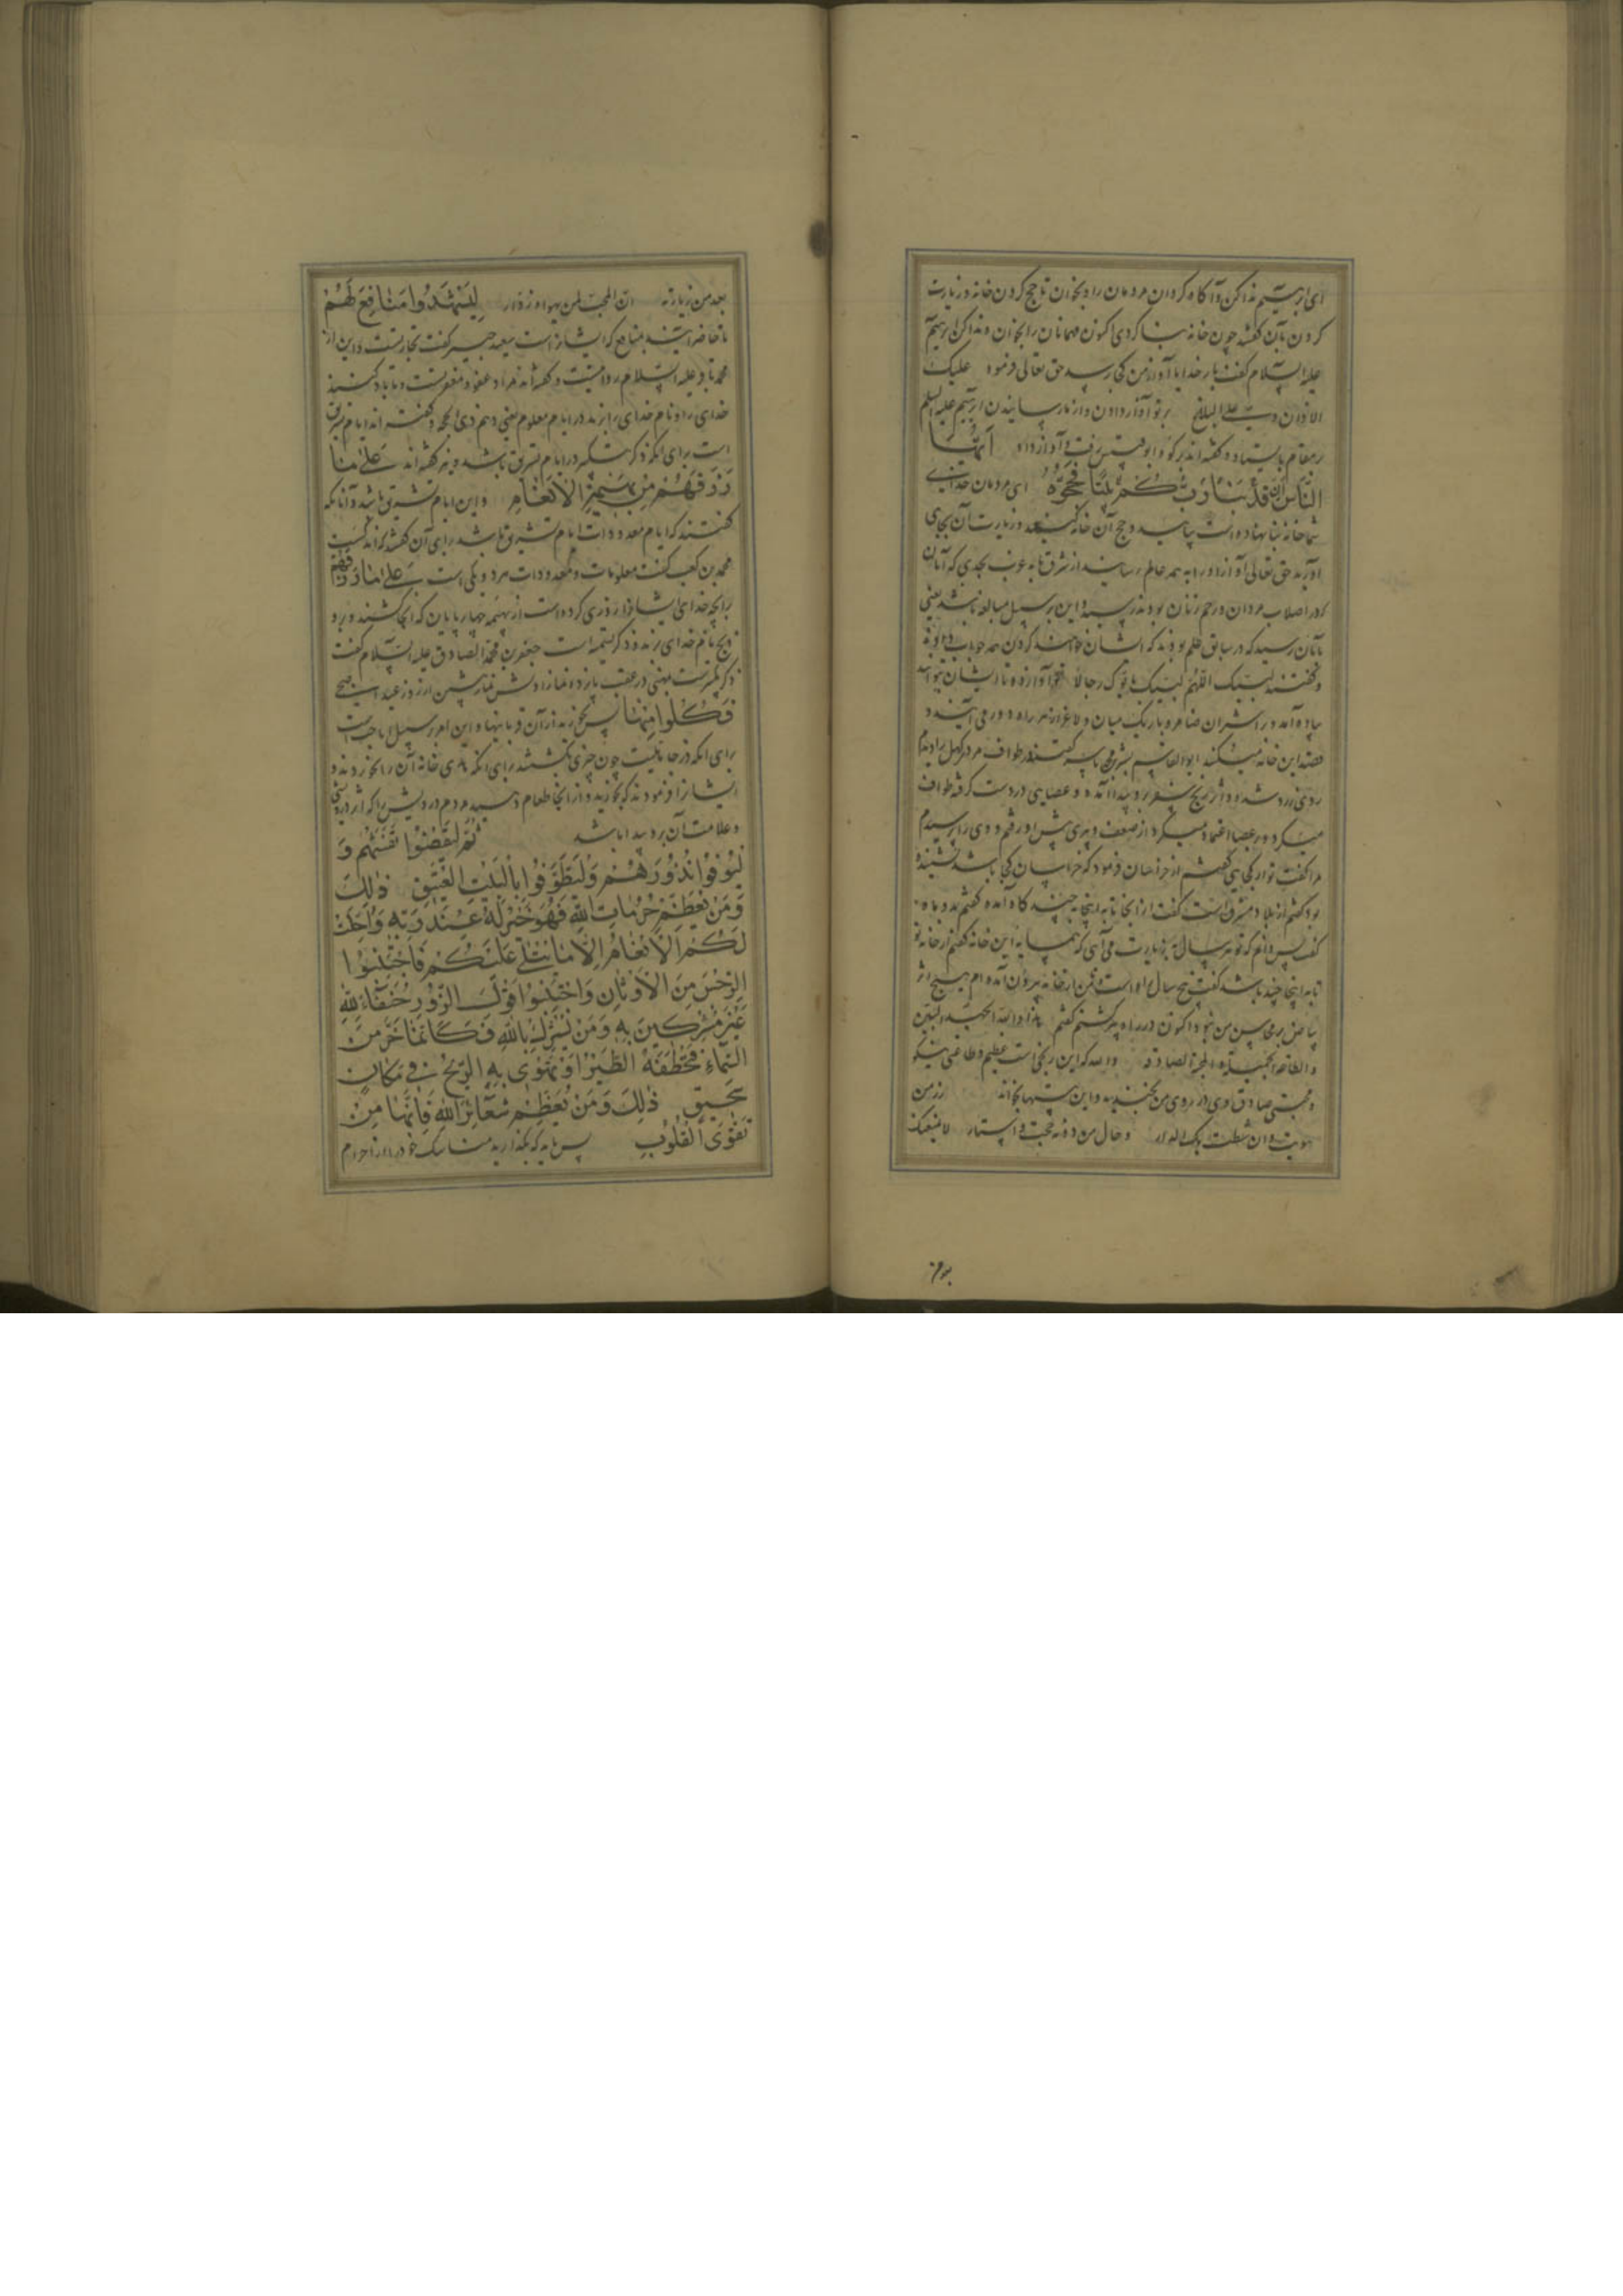 ای ابرهیم ندا کن و آگاه گردان مردمان را و بخوان تا حج کردن خانه و زیارت
کردن بآن گفتند چون خانه بنا کردی اکنون مهمانان را بخوان و ندا کن ابرهیم
علیه السلام گفت بار خدایا آواز من کی رسد حق تعالی فرمود علیک
الاذان و علی البلاغ بر تو آواز دادن و از ما رسانیدن ابرهیم علیه السلم
بر مقام بایستاد و گفته اند بر کوه ابو قبیس رفت و آواز داد ایها
الناس ان قد بنا ربکم بیتا فحجوه ای مردمان خدای
شما خانه بنا نهاده است بیایید و حج آن خانه کنید و زیارت آن بجای
آورید حق تعالی آواز او را به همه عالم رسانید از شرق تا به غرب بحدی که آنان
که در اصلاب مردان و رحم زنان بودند رسید و این بر سبیل مبالغه باشد یعنی
بآنان رسید که در سابق علم بودند که ایشان خواهند کرد همه جواب دادند
و گفتند لبیک اللهم لبیک یاتوک رجالا آواز ده تا ایشان بتو آیند
پیاده آمد و بر اشتران ضامر و باریک میان و لاغر از هر راه دور می آیند و
قصد این خانه میکنند ابو القاسم بشر گفت در طواف مردی کهل را دیدم
روی زرد شده و اثر رنج سفر برو پیدا آمده و عصایی در دست گرفته طواف
میکرد و بر عصا اعتماد میکرد از ضعف و پیری پیش او رفتم و وی را پرسیدم
مرا گفت تو از کجایی گفتم از خراسان فرمود که خراسان کجا باشد نشنیده
بود گفتم از بلاد مشرق است گفت از آنجا تا به اینجا به چند گاه آمده گفتم بدو ماه
گفت پس دانم که تو هر سال به زیارت می آیی که همسایه این خانه گفتم از خانه تو
تا به اینجا چند باشد گفت پنج سال راه است من از خانه بیرون آمده ام هیچ اثر
بیاض بر محاسن من نبود اکنون در راه پیر گشتم گفتم هذا والله الجهد البین
و الطاعة الجمیلة و المحبة الصادقة والله که این رنجی است عظیم و طاعتی نیکو
و محبتی صادق او در روی من بخندید و این بیتها بخواند زر من
هویت و ان شطت بک الدار و حال من دونه حجب و استار لا یمنعنک
بعد من
بعد من زیارته ان المحب لمن یهواه زوار لیشهدوا منافع لهم
تا حاضر آیند بمنافع که ایشانراست سعید جبیر گفت تجارتست و این از
محمد باقر علیه السلام روایتست و گفته اند مراد عفو و مغفرتست و تا یاد کنند
خدای را و نام خدای را برند در ایام معلوم یعنی دهم ذی الحجه و گفته اند ایام تشریق
است برای آنکه ذکر تکبیر در ایام تشریق باشد و نیز گفته اند علی ما
رزقهم من بهیمة الانعام و این ایام تشریق باشد و آنانکه
گفتند که ایام معدودات ایام تشریق باشد برای آن گفته اند
محمد بن کعب گفت معلومات و معدودات هر دو یکی است علی ما رزقهم
برانچه خدای ایشانرا روزی کرده است از بهیمه چهار پایان که آنجا کشند و برو
ذبح نام خدای برند و ذکر تسمیه است جعفر بن محمد الصادق علیه السلام گفت
ذکر تکبیرست بمنی در عقب پانزده نماز اولش نماز پیشین از روز عید
فکلوا منها پس بخورید از آن قربانیها و این امر بر سبیل اباحتست
برای آنکه در جاهلیت چون چیزی بکشتندی برای آنکه خانه آن را نخوردند و
ایشانرا فرمودند که بخورید و از آنجا طعام دهید مردم درویش را که اثر درویشی
و علامت آن برو پیدا باشد ثم لیقضوا تفثهم و
لیوفوا نذورهم ولیطوفوا بالبیت العتیق ذلک
ومن یعظم حرمات الله فهو خیر له عند ربه واحلت
لکم الانعام الا ما یتلی علیکم فاجتنبوا
الرجس من الاوثان واجتنبوا قول الزور حنفاء لله
غیر مشرکین به ومن یشرک بالله فکانما خر من
السماء فتخطفه الطیر او تهوی به الریح فی مکان
سحیق ذلک ومن یعظم شعائر الله فانها من
تقوی القلوب پس باید که بگذارید مناسک خود را از احرام